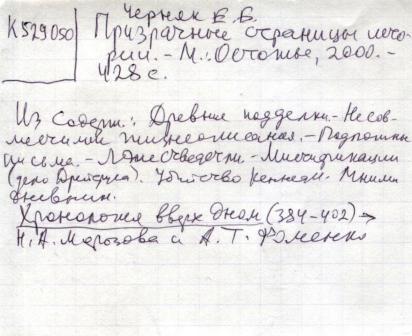 К529050
Черняк Е.Б.
Призрачные страницы исто-
рии. - М.: Остожье, 2000. -
428 с.
Из содерж.: Древние подделки. - Несов-
местимые жизнеописания. - Подметны
письма. - Лжесведетели. - Мистификации
(дело Дрейфуса). Убийство Кеннеди. Мнимы
дневники.
Хронология вверх дном (384-402) →
Н.А. Морозова и А.Т. Фоменко